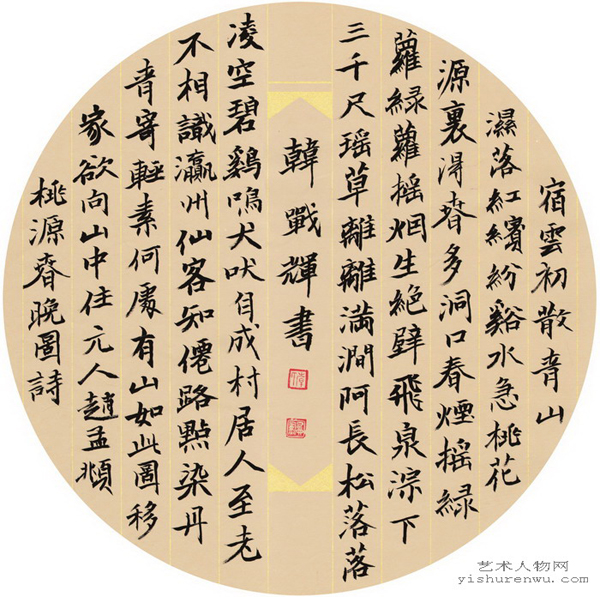 宿雲初散青山
濕落紅繽紛谿水急桃花
源裏淂春多洞口春煙摇緑
蘿緑蘿摇烟生絶壁飛泉淙下
三千尺瑶草離離滿澗阿長松落落
韓戰輝書
凌空碧鷄鳴犬吠自成村居人至老
不相識瀛州仙客知僊路點染丹
青寄輕素何處有山如此圖移
家欲向山中住元人趙孟頫
桃源春晚圖詩
艺术人物网
yishurenwu.com